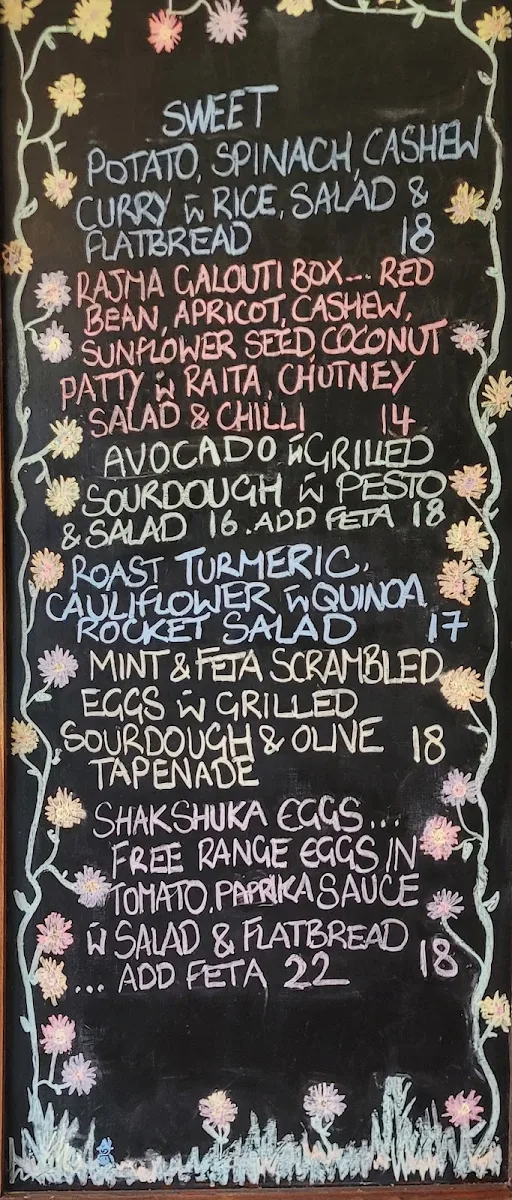 SWEET
POTATO, SPINACH, CASHEW
CURRY w̄ RICE, SALAD &
FLATBREAD 18
RAJMA GALOUTI BOX... RED
BEAN, APRICOT, CASHEW,
SUNFLOWER SEED, COCONUT
PATTY w̄ RAITA, CHUTNEY
SALAD & CHILLI 14
AVOCADO w̄ GRILLED
SOURDOUGH w̄ PESTO
& SALAD 16. ADD FETA 18
ROAST TURMERIC,
CAULIFLOWER w̄ QUINOA
ROCKET SALAD 17
MINT & FETA SCRAMBLED
EGGS w̄ GRILLED
SOURDOUGH & OLIVE 18
TAPENADE
SHAKSHUKA EGGS...
FREE RANGE EGGS IN
TOMATO, PAPRIKA SAUCE
w̄ SALAD & FLATBREAD 18
... ADD FETA 22